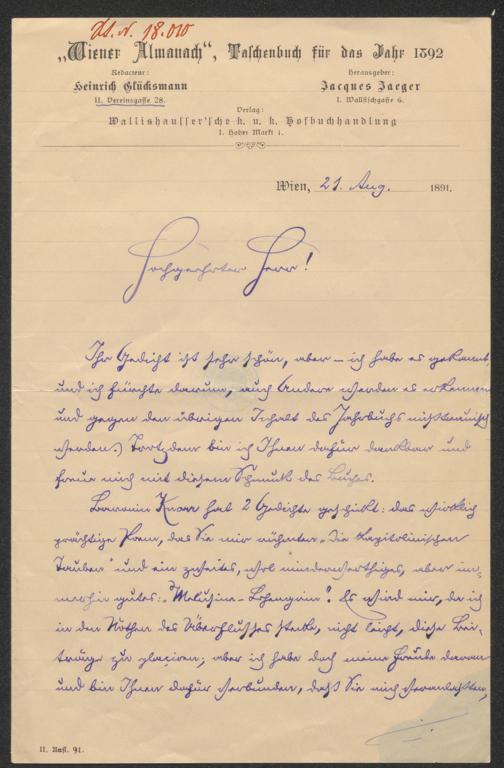 Z. N. 18.010
„Wiener Almanach“, Taschenbuch für das Jahr 1892
Redacteur: Herausgeber:
Heinrich Glücksmann Jacques Jaeger
II. Vereinsgasse 28. I. Wallfischgasse 6.
Verlag:
Wallishausser'sche k. u. k. Hofbuchhandlung
I. Hoher Markt 1.
Wien, 21. Aug. 1891.
Hochgeehrter Herr!
Ihr Gedicht ist sehr schön, aber – ich habe es gekannt,
und ich fürchte darum, auch Andere werden es erkennen
und gegen den übrigen Inhalt des Jahrbuchs mißtrauisch
werden.) Trotzdem bin ich Ihnen dafür dankbar und
freue mich mit diesem Schmuck des Buches.
Baronin Knorr hat 2 Gedichte geschickt: das wirklich
prächtige Poem, das Sie mir rühmten „Die kapitolinischen
Tauben“ und ein zweites, wol minderwerthiges, aber im-
merhin gutes: „Melusine-Lohengrin“. Es wird mir, der ich
in den Nöthen des Überflusses stecke, nicht leicht, diese Bei-
träge zu plaziren; aber ich habe doch meine Freude daran
und bin Ihnen dafür verbunden, daß Sie mich veranlaßten,
II. Aufl. 91.